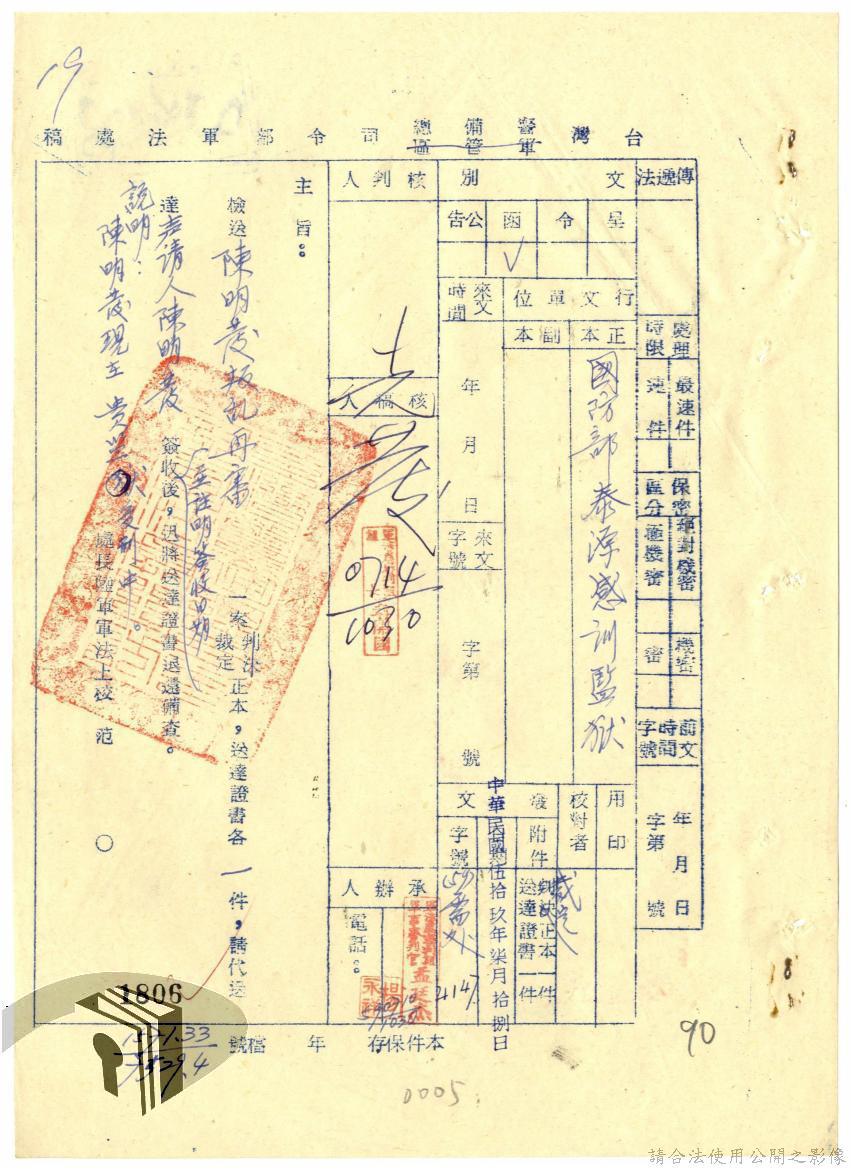 19
台灣警備總司令部軍法處稿
軍管區
傳遞法
處理時限
最速件
速件
保密區分
絕對機密
極機密
機密
密
前文時間字號
年月日
字第號
文別
呈
令
函
公告
✓
行文單位
正本
國防部泰源感訓監獄
副本
來文時間
年月日
來文字號
字第號
用印
校對者
發文
附件
判決正本
裁定
送達證書
一件
一件
中華民國伍拾玖年柒月拾捌日
字號
4147
核判人
核稿人
0714
1030
承辦人
電話。
主旨。
檢送陳明發叛亂再審一案判決裁定正本,送達證書各一件,請代送
達聲請人陳明發簽收後,迅將送達證書退還備查。
(並註明簽收日期)
說明:
陳明發現在貴監執行中。
處長陸軍軍法上校范○
1806
1571.33
3529.4
本件保存年檔號
90
0005
請合法使用公開之影像